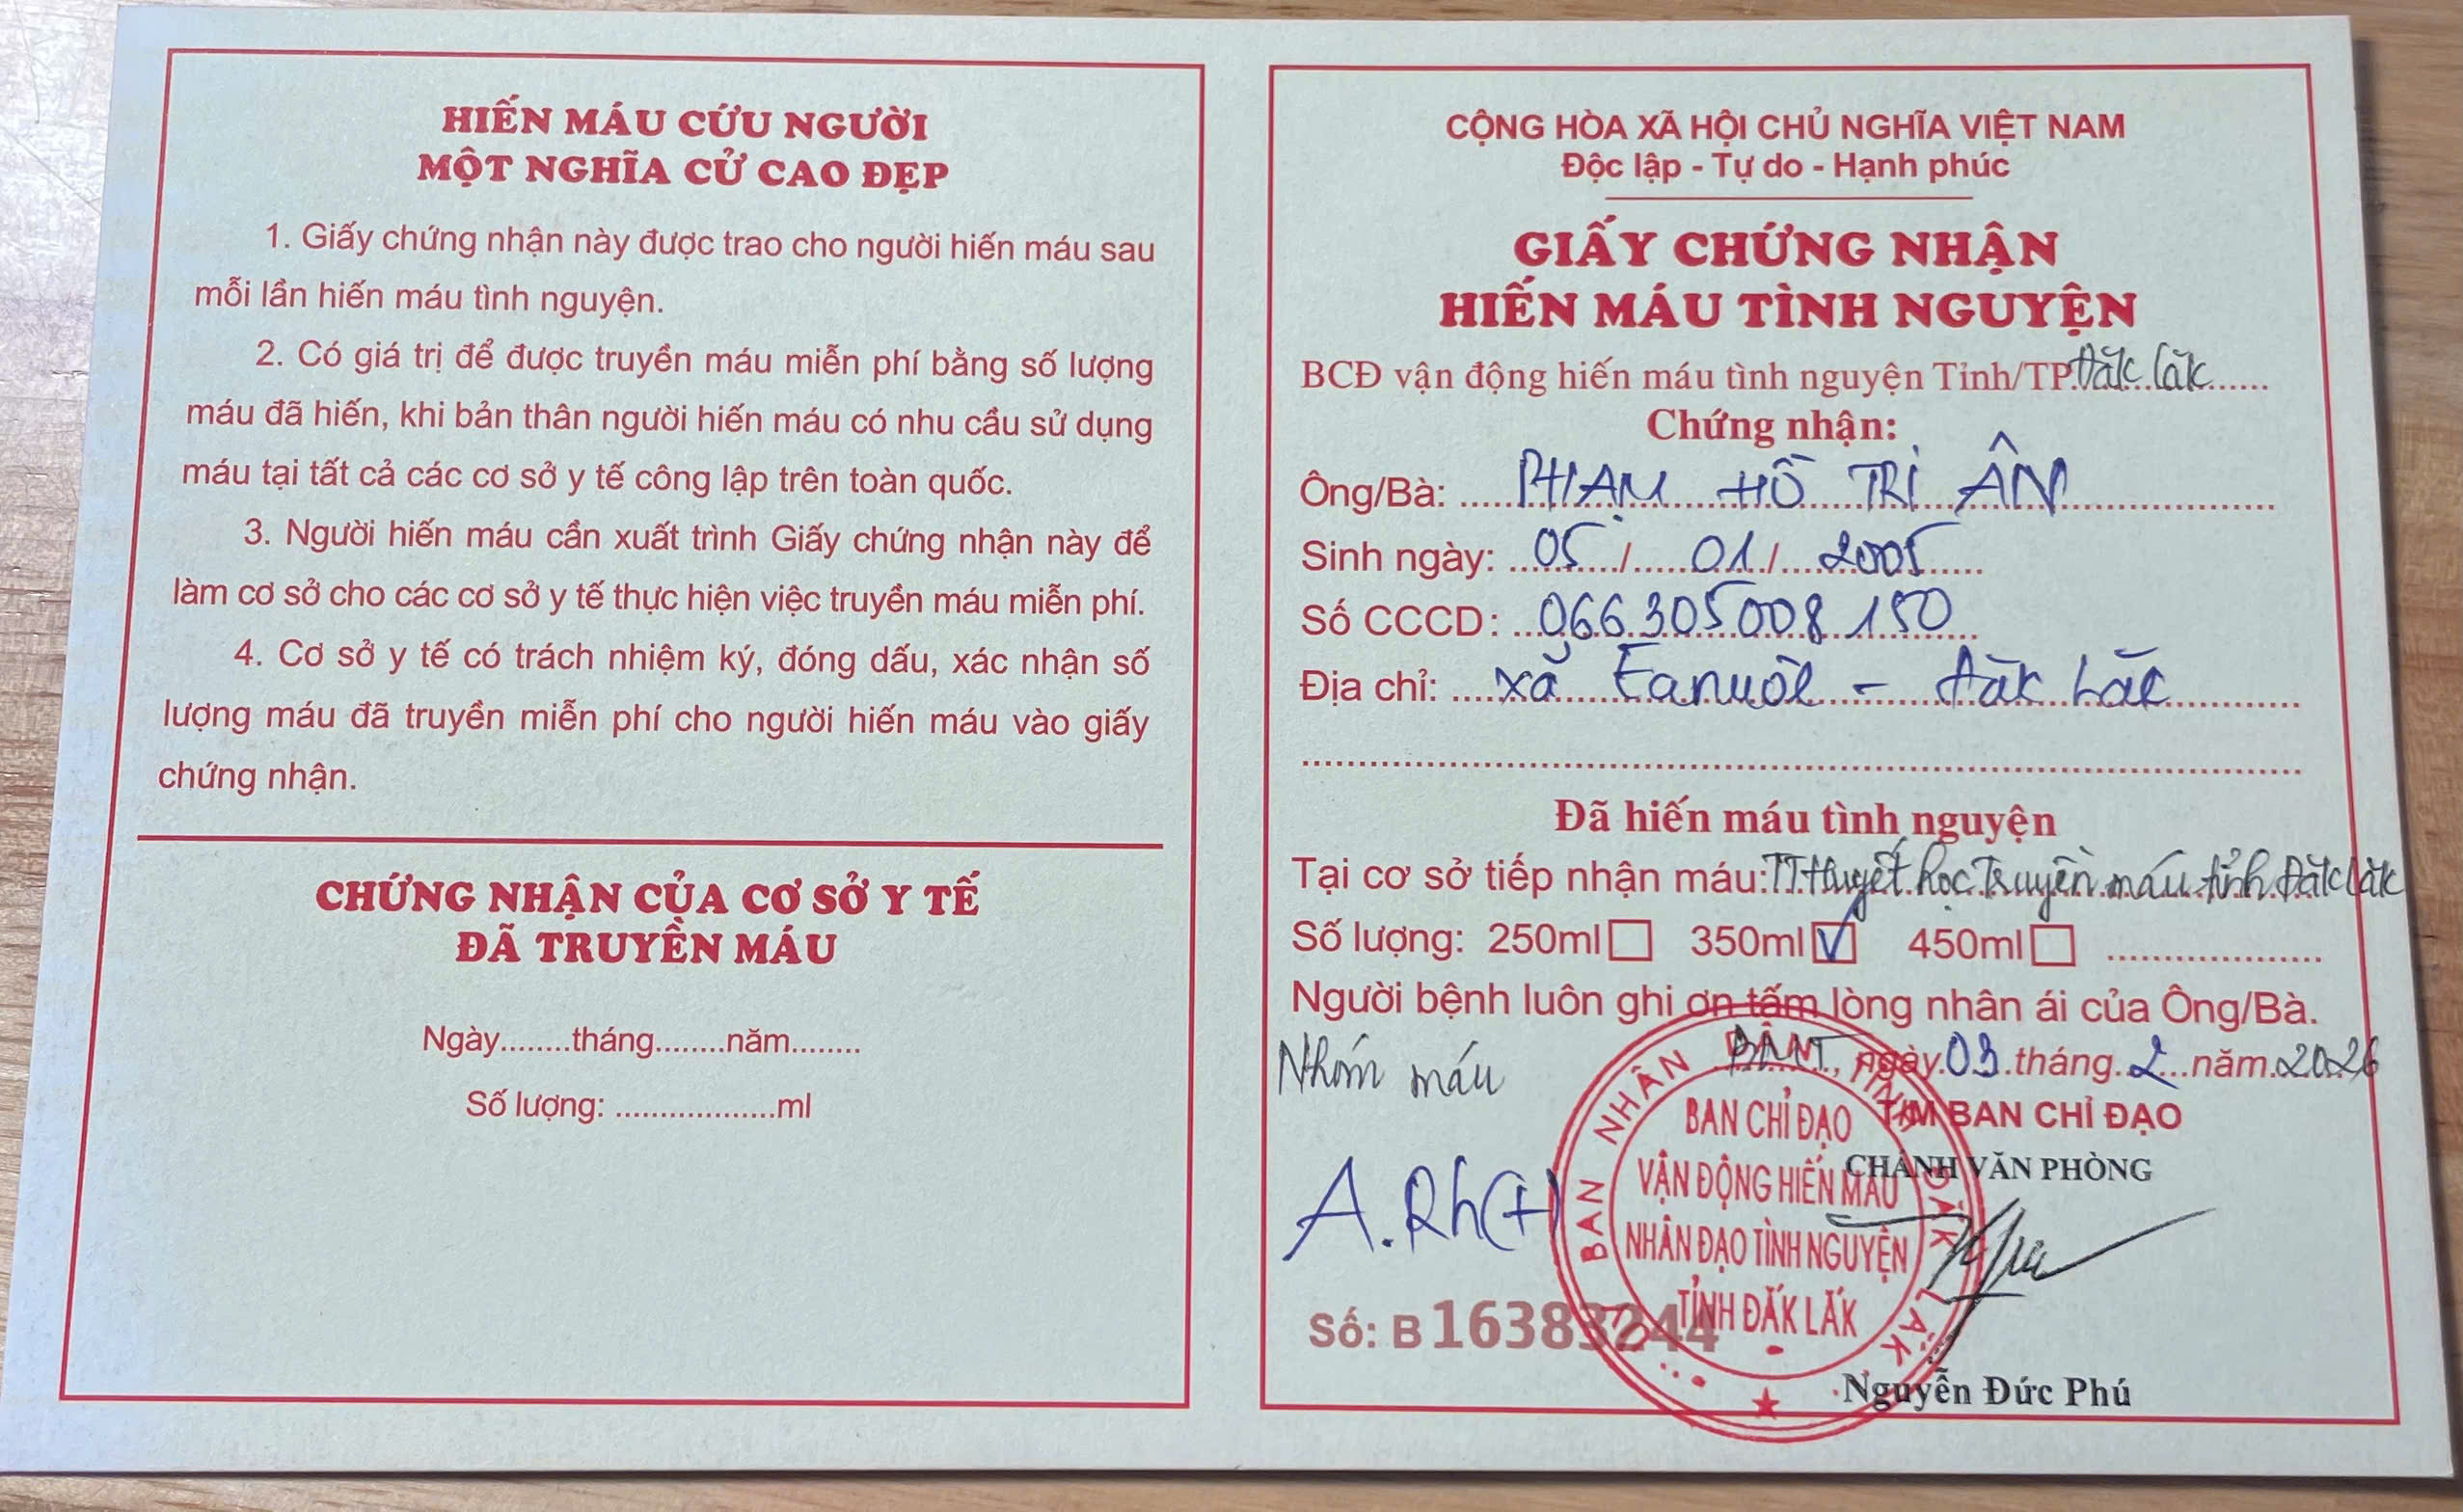 HIẾN MÁU CỨU NGƯỜI
MỘT NGHĨA CỬ CAO ĐẸP
1. Giấy chứng nhận này được trao cho người hiến máu sau
mỗi lần hiến máu tình nguyện.
2. Có giá trị để được truyền máu miễn phí bằng số lượng
máu đã hiến, khi bản thân người hiến máu có nhu cầu sử dụng
máu tại tất cả các cơ sở y tế công lập trên toàn quốc.
3. Người hiến máu cần xuất trình Giấy chứng nhận này để
làm cơ sở cho các cơ sở y tế thực hiện việc truyền máu miễn phí.
4. Cơ sở y tế có trách nhiệm ký, đóng dấu, xác nhận số
lượng máu đã truyền miễn phí cho người hiến máu vào giấy
chứng nhận.
CHỨNG NHẬN CỦA CƠ SỞ Y TẾ
ĐÃ TRUYỀN MÁU
Ngày........tháng........năm........
Số lượng: ..................ml
CỘNG HÒA XÃ HỘI CHỦ NGHĨA VIỆT NAM
Độc lập - Tự do - Hạnh phúc
GIẤY CHỨNG NHẬN
HIẾN MÁU TÌNH NGUYỆN
BCĐ vận động hiến máu tình nguyện Tỉnh/TP. Đăk Lăk
Chứng nhận:
Ông/Bà: PHẠM HỒ TRI ÂN
Sinh ngày: 05 / 01 / 2005
Số CCCD: 066305008150
Địa chỉ: xã Eanuôl - Đăk Lăk
Đã hiến máu tình nguyện
Tại cơ sở tiếp nhận máu: TT Huyết học Truyền máu tỉnh Đăk Lăk
Số lượng: 250ml 350ml ✓ 450ml
Người bệnh luôn ghi ơn tấm lòng nhân ái của Ông/Bà.
Nhóm máu
A.Rh(+)
ngày 03 tháng 2 năm 2026
TM BAN CHỈ ĐẠO
CHÁNH VĂN PHÒNG
BAN NHÂN DÂN TỈNH ĐẮK LẮK
BAN CHỈ ĐẠO
VẬN ĐỘNG HIẾN MÁU
NHÂN ĐẠO TÌNH NGUYỆN
TỈNH ĐẮK LẮK
Số: B 16383244
Nguyễn Đức Phú